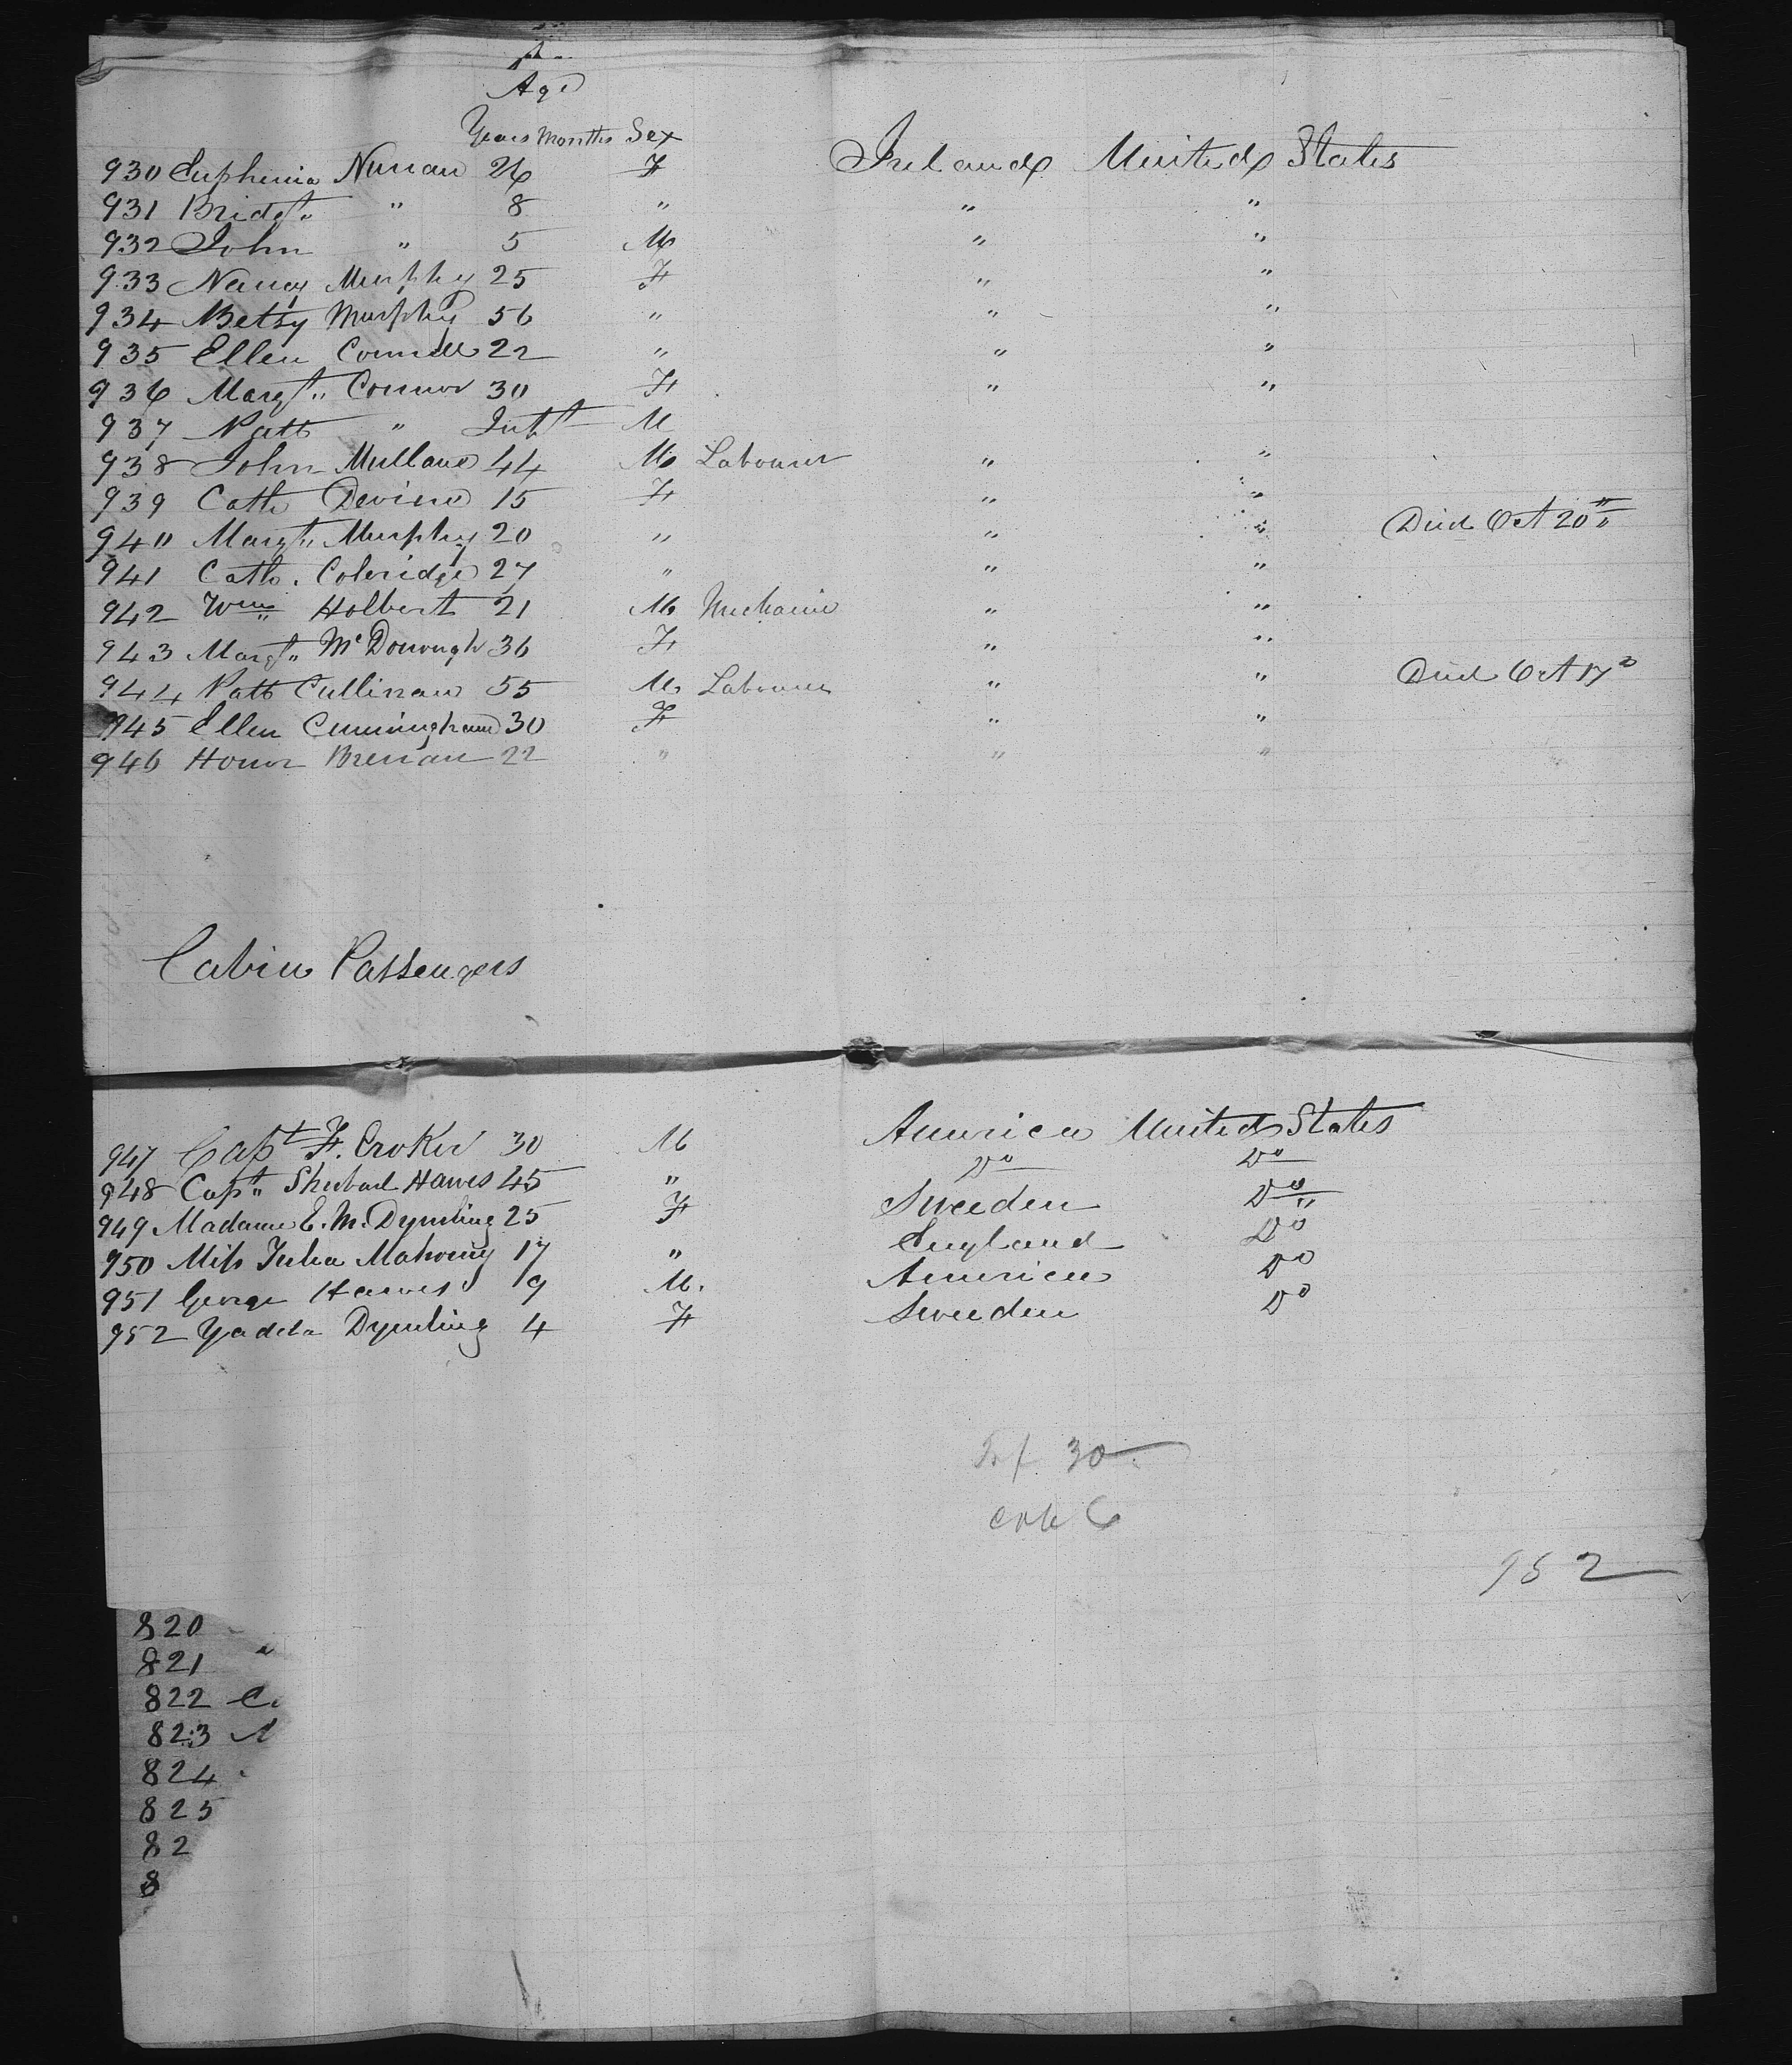 Age
Years Months Sex
930 Euphemia Nunan 26 F Ireland United States
931 Bridgt " 8 " " "
932 John " 5 M " "
933 Nancy Murphy 25 F " "
934 Betsy Murphy 56 " " "
935 Ellen Connell 22 " " "
936 Margt Connor 30 F " "
937 Patt " Inft M
938 John Mullane 44 M Labourer " "
939 Cath Devine 15 F " "
940 Margt Murphy 20 " " " Died Oct 20th
941 Cath. Coleridge 27 " " "
942 Wm Holbert 21 M Mechanic " "
943 Margt McDonough 36 F " "
944 Patt Cullinan 55 M Labourer " " Died Oct 17
945 Ellen Cunningham 30 F " "
946 Honor Brenan 22 " " "
Cabin Passengers
947 Capt F. Croker 30 M America United States
948 Capt Hawes 45 " Do Do
949 Madame E. M. Dymling 25 F Sweden Do
950 Miss Julia Mahoney 17 " England Do
951 George Hawes 9 M. America Do
952 Dymling 4 F Sweden Do
30
6
952
820
821
822 C
823
824
825
82
8